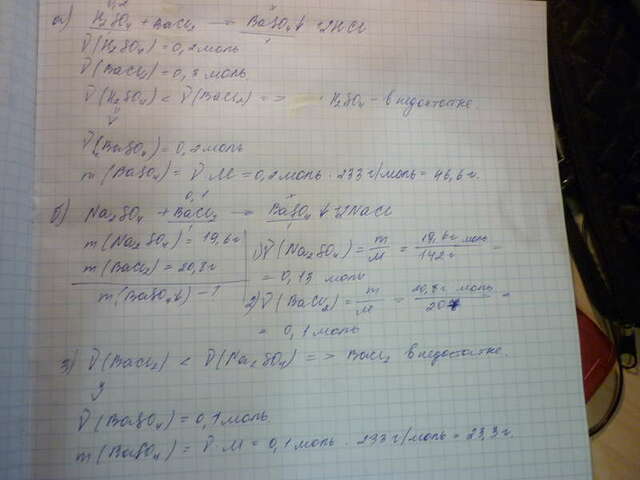 0,2
а) H₂SO₄ + BaCl₂ → BaSO₄↓ + 2HCl
ν(H₂SO₄) = 0,2 моль
ν(BaCl₂) = 0,3 моль
ν(H₂SO₄) < ν(BaCl₂) => H₂SO₄ – в недостатке.
ν(BaSO₄) = 0,2 моль
m(BaSO₄) = ν·M = 0,2 моль · 233 г/моль = 46,6 г.
0,1
б) Na₂SO₄ + BaCl₂ → BaSO₄↓ + 2NaCl
m(Na₂SO₄) = 19,6 г
m(BaCl₂) = 20,8 г
m(BaSO₄↓) – ?
1) ν(Na₂SO₄) = m/M = 19,6 г моль/142 г =
= 0,13 моль
2) ν(BaCl₂) = m/M = 20,8 г моль/208 =
= 0,1 моль
3) ν(BaCl₂) < ν(Na₂SO₄) => BaCl₂ в недостатке.
ν(BaSO₄) = 0,1 моль.
m(BaSO₄) = ν·M = 0,1 моль · 233 г/моль = 23,3 г.